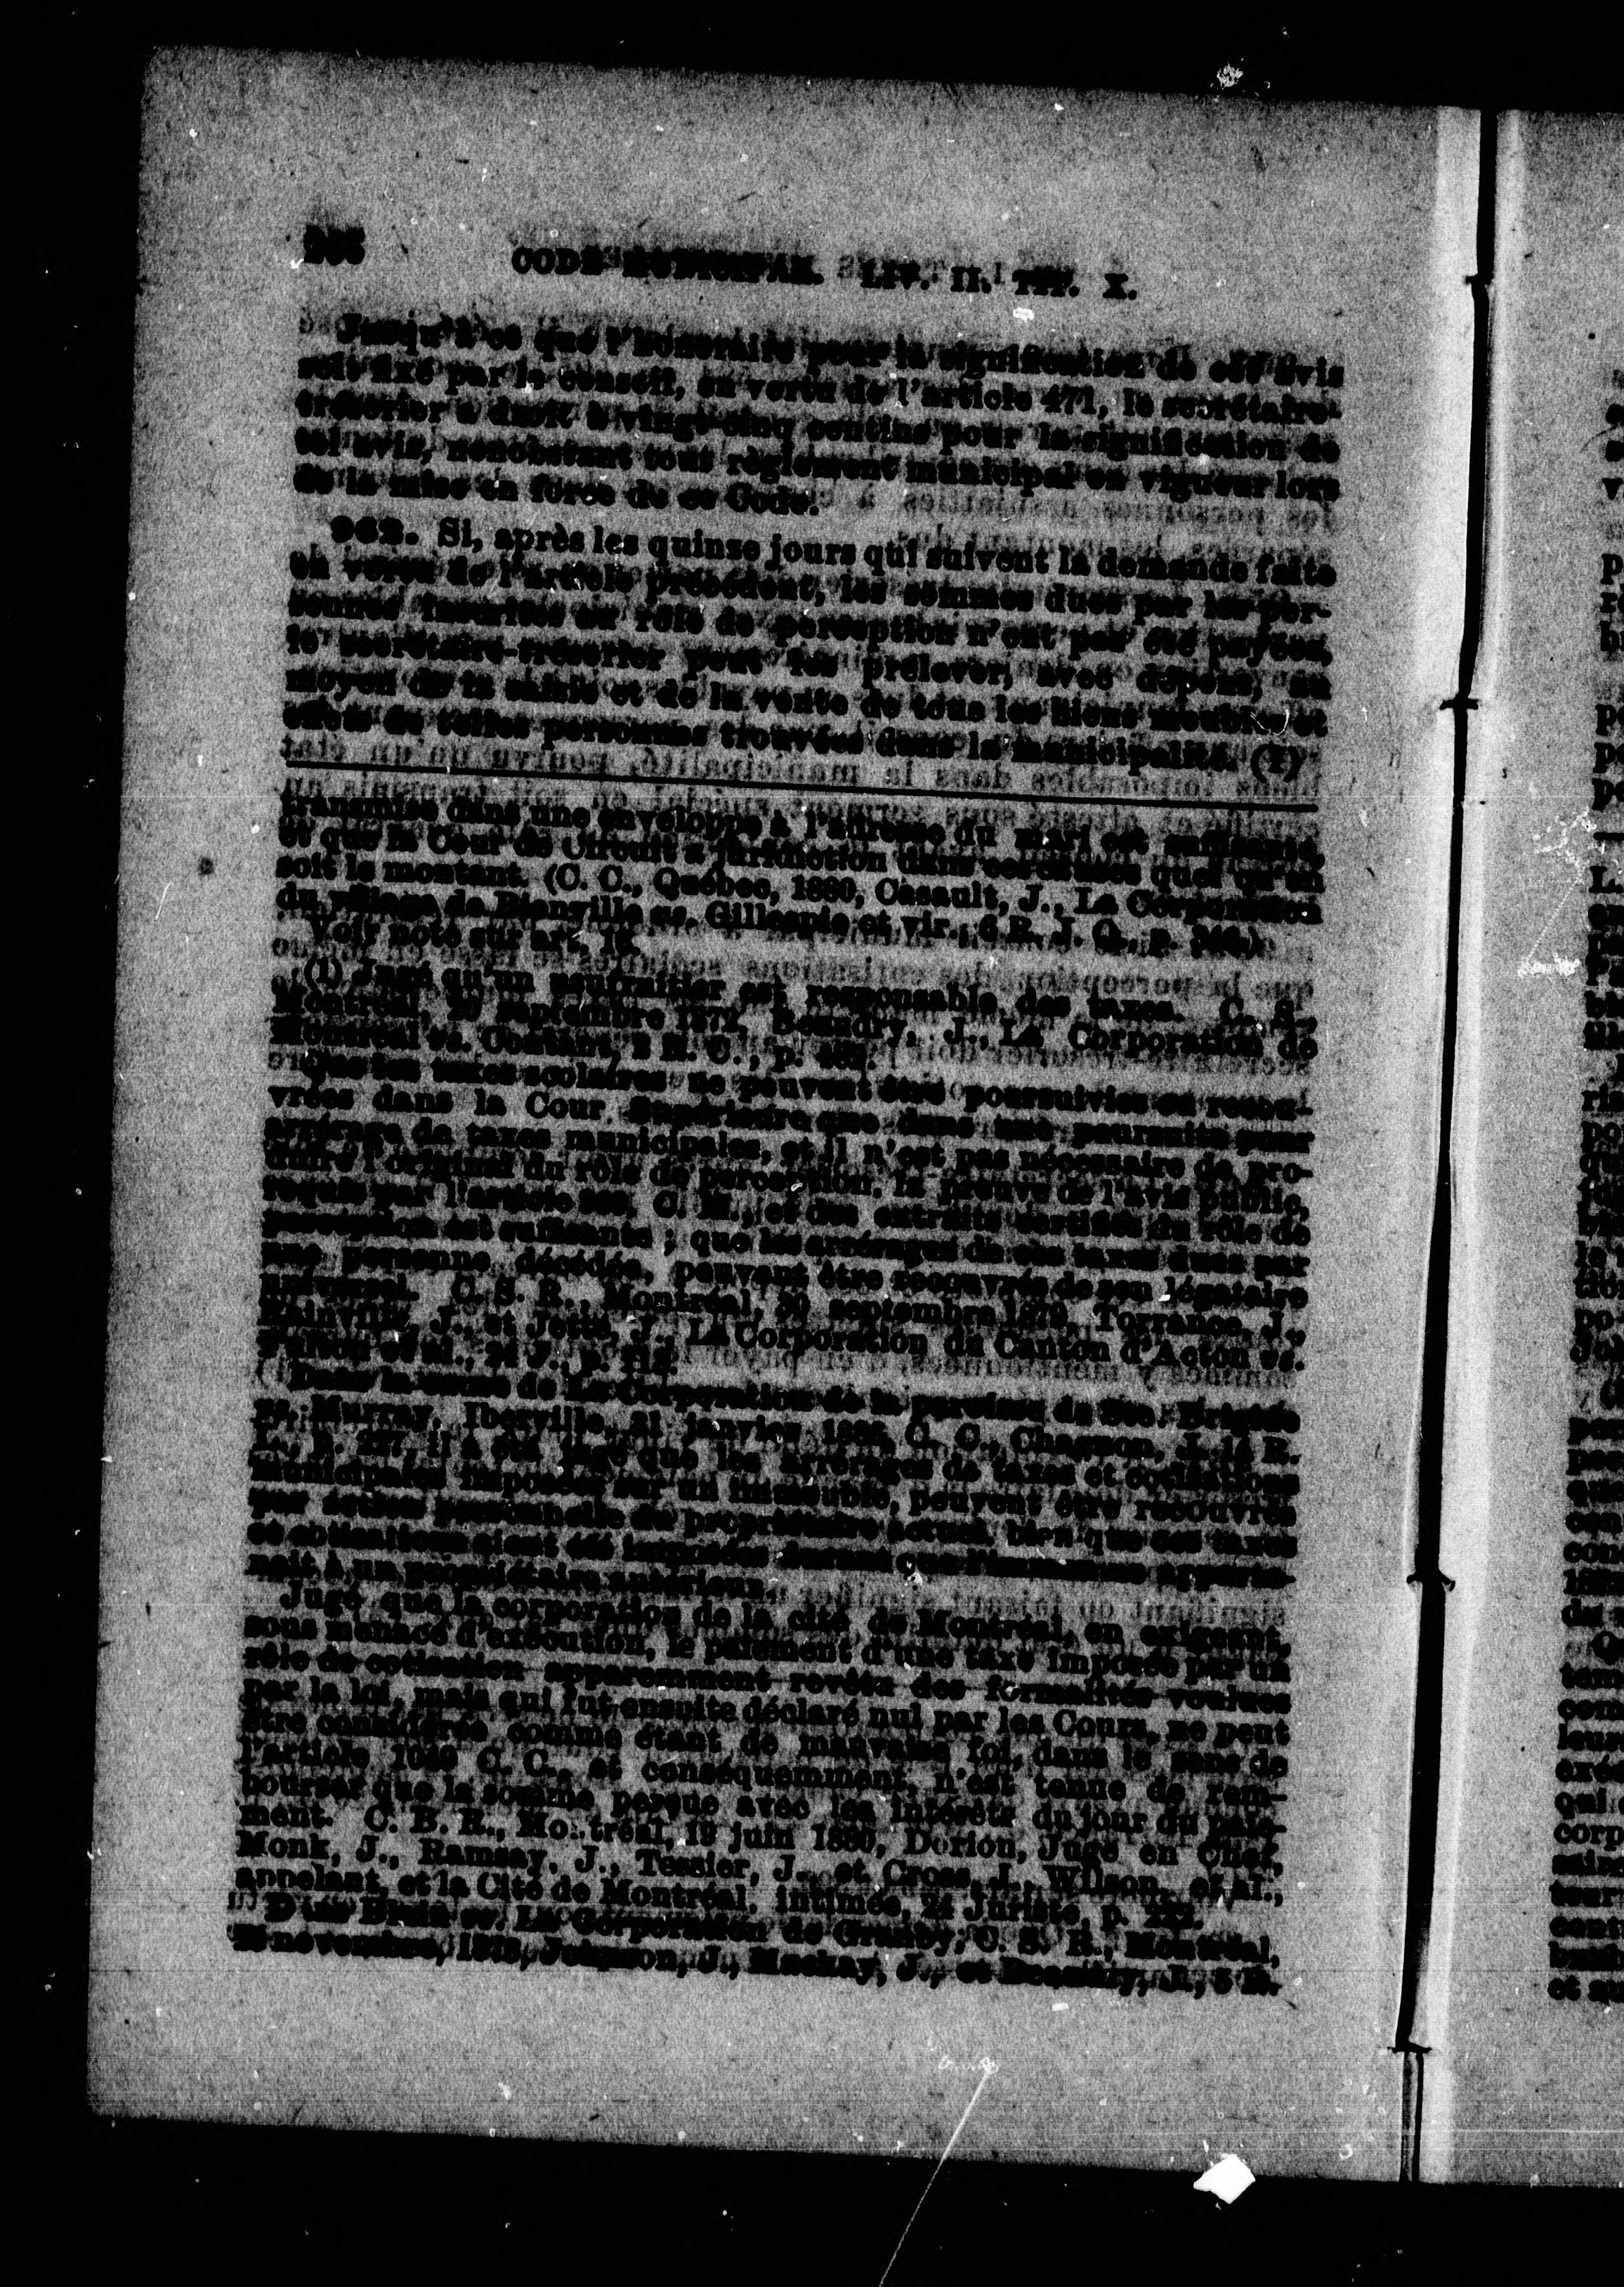 CODE MUNICIPAL. LIV. II. TIT. X.
Jusqu'à ce que l'honoraire pour la signification de cet avis
soit fixé par le conseil, en vertu de l'article 471, le secrétaire-
trésorier a droit à vingt-cinq centins pour la signification de
tel avis, nonobstant tout règlement municipal en vigueur lors
de la mise en force de ce Code.
962. Si, après les quinze jours qui suivent la demande faite
en vertu de l'article précédent, les sommes dues par les per-
sonnes inscrites au rôle de perception n'ont pas été payées,
le secrétaire-trésorier peut les prélever, avec dépens, au
moyen de la saisie et de la vente de tous les biens meubles et
effets de telles personnes trouvées dans la municipalité. (1)
transmise dans une enveloppe à l'adresse du mari est suffisante,
et que la Cour de Circuit a juridiction dans ces causes quel qu'en
soit le montant. (C. C., Québec, 1880, Casault, J., La Corporation
du village de Bienville vs. Gillespie et vir., 6 R. J. Q., p. 346.)
Voir note sur art. 16.
(1) Jugé qu'un usufruitier est responsable des taxes. C. S.,
Montréal, 30 septembre 1872, Beaudry, J., La Corporation de
Montréal vs. Contant, 2 R. C., p.
Que les taxes scolaires ne peuvent être poursuivies ou recou-
vrées dans la Cour Supérieure que dans une poursuite pour
arrérages de taxes municipales, et il n'est pas nécessaire de pro-
duire l'original du rôle de perception, la preuve de l'avis public,
requis par l'article 960, C. M., et des extraits certifiés du rôle de
perception est suffisante ; que les arrérages de ces taxes dues par
une personne décédée, peuvent être recouvrés de son légataire
universel. C. S. R., Montréal, 30 septembre 1879, Torrance, J.,
Rainville, J., et Jetté, J., La Corporation du Canton d'Acton vs.
et al., 24 J., p. 113.
Dans la cause de La Corporation de la paroisse de Ste. Brigide
vs. Murray, Iberville, 31 janvier C. C., Chagnon, J., R.
L., p. 227, il a été jugé que les arrérages de taxes et cotisations
municipales imposées sur un immeuble, peuvent être recouvrés
par action personnelle du propriétaire actuel, bien que ces taxes
et cotisations aient été imposées durant que l'immeuble apparte-
nait à un propriétaire antérieur.
Jugé que la corporation de la cité de Montréal, en exigeant,
sous menace d'exécution, le paiement d'une taxe imposée par un
rôle de cotisation apparemment revêtu des formalités voulues
par la loi, mais qui fut ensuite déclaré nul par les Cours, ne peut
être considérée comme étant de mauvaise foi, dans le sens de
l'article 1049 C. C., et conséquemment n'est tenue de rem-
bourser que la somme perçue avec les intérêts du jour du paie-
ment. C. B. R., Montréal, 18 juin 1880, Dorion, Juge en Chef,
Monk, J., Ramsay, J., Tessier, J., et Cross, J., Wilson, et al.,
appelant, et la Cité de Montréal, intimée, 24 Juriste, p. 222.
Dans Blain vs. La Corporation de Granby, C. S. R., Montréal,
novembre, 1873, Johnson, J., Mackay, J., et Beaudry, J., 5 R.